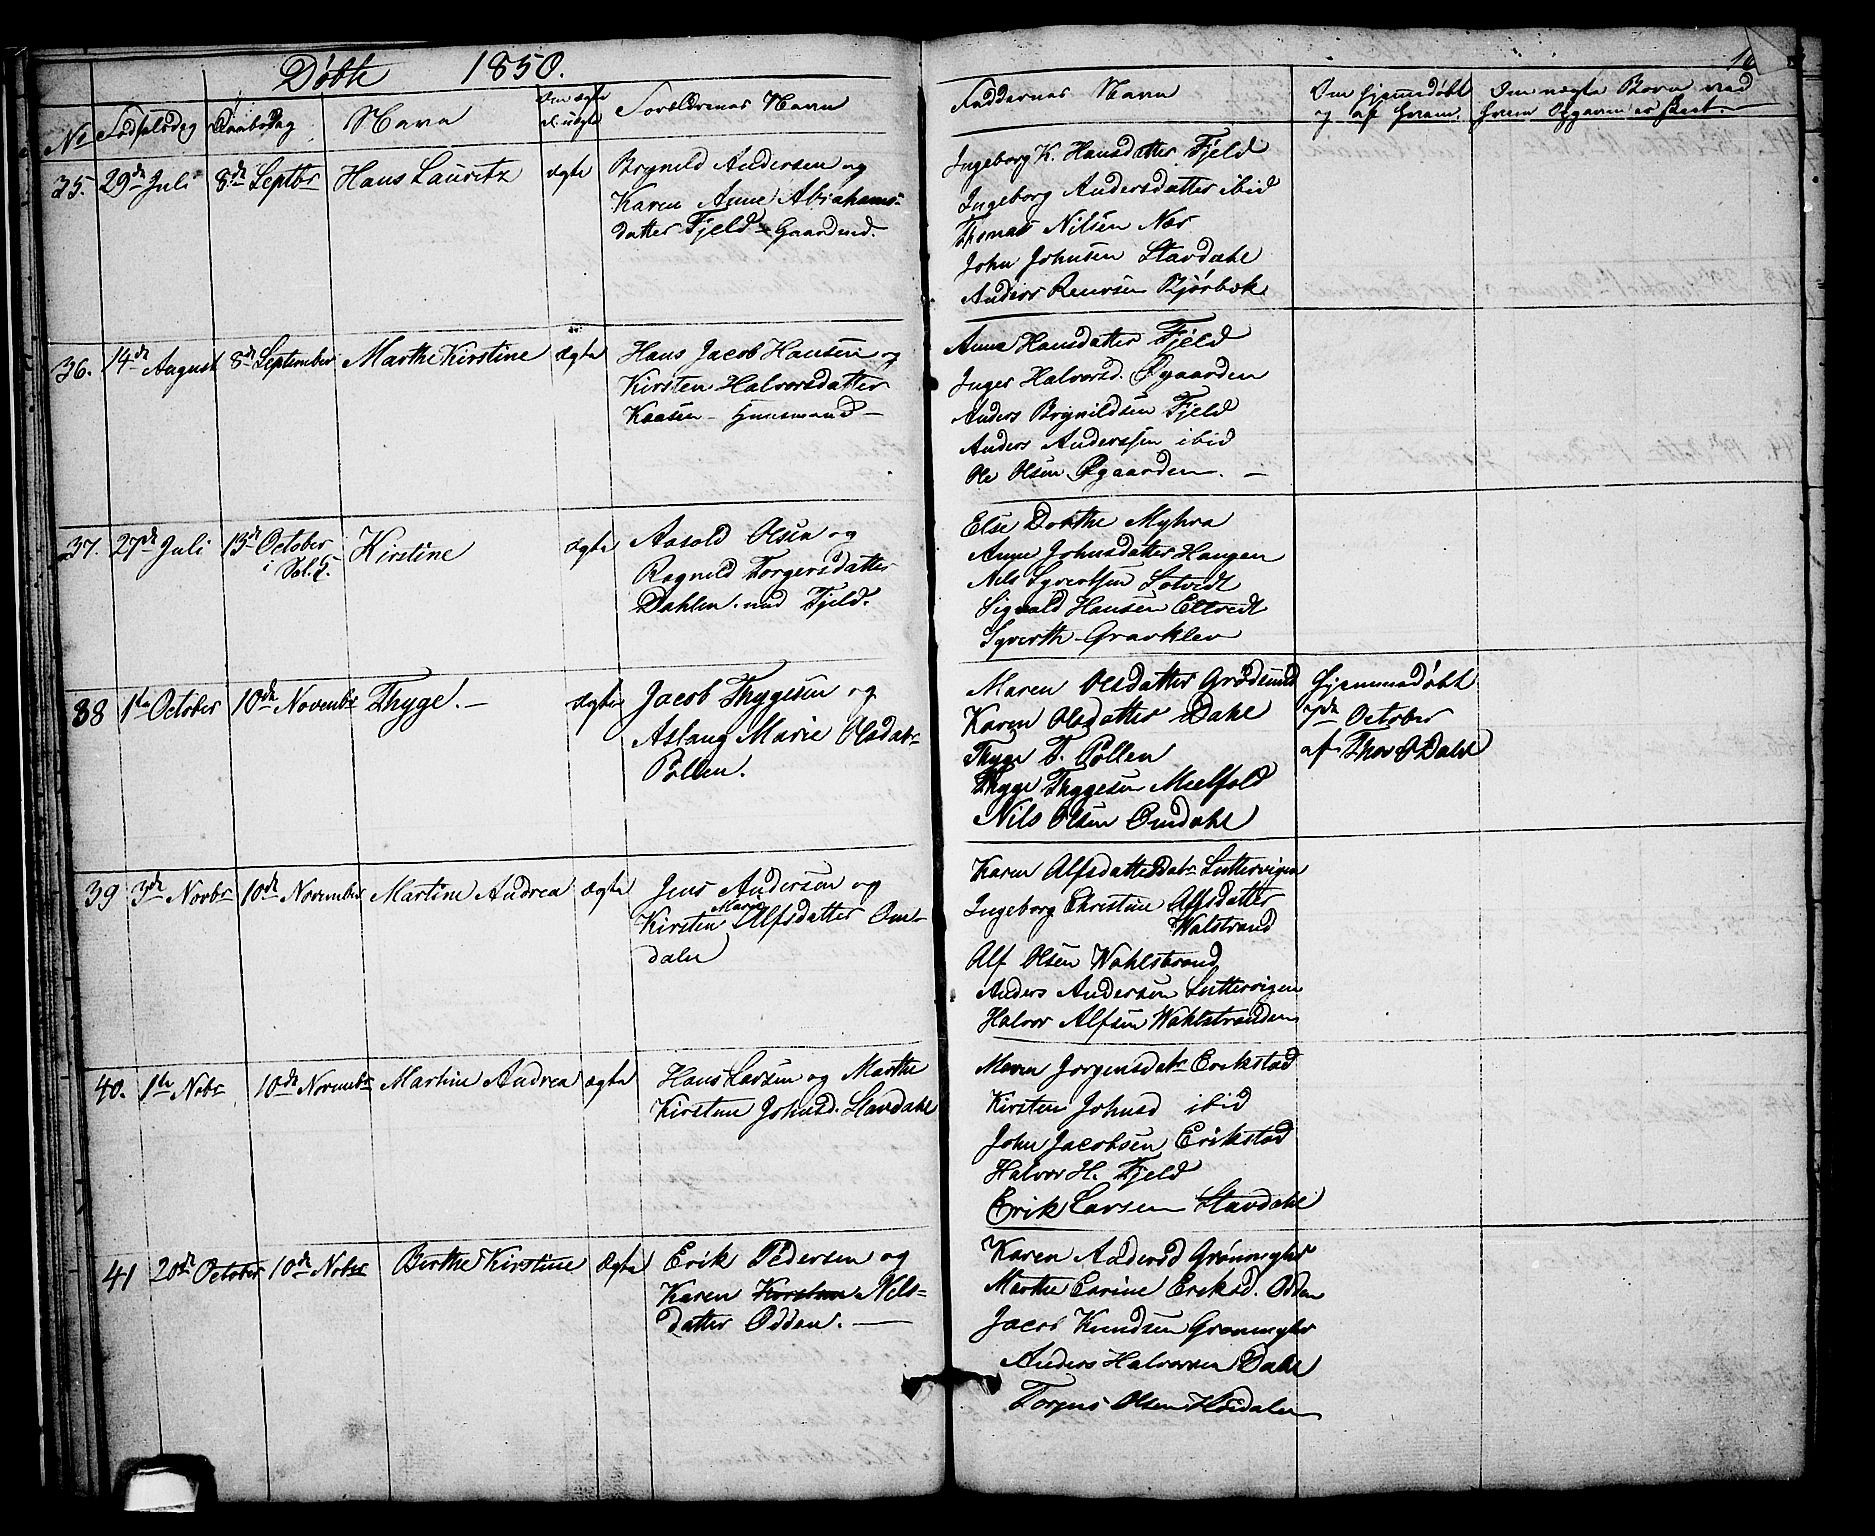 Døbte 1850.
16
No Fødselsdag Daabsdag Navn Om ægte el. uægte Forældrenes Navn Faddernes Navn Om hjemmedøbt og af hvem. Om uægte Børn ved hvem Opgaven er skeet.
35. 29de Juli 8de Septbr Hans Lauritz ægte Brynild Andersen og
Karen Anne Abrahams-
datter Fjeld Gaardmd.
Ingeborg K. Hansdatter Fjeld
Ingeborg Andersdatter ibid
Thomas Nilsen Næs
John Johnsen Stavdahl
Anders Reiersen Bjørbæk
36. 14de August 8de September Marthe Kirstine ægte Hans Jacob Hansen og
Kirsten Halvorsdatter
Kaasen - Huusmand -
Anna Hansdatter Fjeld
Inger Halvorsd. Øgaarden
Anders Brynildsen Fjeld
Anders Anderssen ibid
Ole Olsen Øgaarden. -
37. 27de Juli 13de October Kirstine ægte Aasold Olsen og
i Sol. K.
Ragnild Torgersdatter
Dahlen. und Fjeld.
Else Dorthe Myhra
Anne Johnsdatter Haugen
Nils Syvertsen Lotvedt
Sigvald Hansen Eltvedt
Syverth Gravklev
38 1te October 10de Novembr Thyge. - ægte Jacob Thygesen og
Aslaug Marie Olsdatr
Pollen.
Maren Olsdatter Grødsund
Karen Olsdatter Dahl
Thyge T. Pollen
Thyge Thygesen Meelfald
Nils Olsen Omdahl
Hjemmedøbt
7de October
af Thor O Dahl
39 3de Novbr 10de November Martine Andrea ægte Jens Andersen og
Kirsten Marie Alfsdatter Om-
dalen
Karen Alfsdatter Luttervigen
Ingeborg Christine Alfsdatter
Walstrand
Alf Olsen Wahlstrand
Anders Andersen Luttervigen
Halvor Alfsen Wahlstranden
40. 1te Nobr 10de Novembr Martine Andrea ægte Hans Larsen og Marthe
Kirstine Johnsd. Stavdahl
Maren Jørgensdatr Erikstad
Kirsten Johnsd ibid
John Jacobsen Erikstad
Halvor H. Fjeld
Erik Larsen Stavdahl
41 20de October 10de Nobr Birthe Kirstine ægte Erik Pedersen og
Karen Kirstine Nils-
datter Odden. -
Karen Andersd Grønmyhr
Marthe Carine Eriksd. Odden
Jacob Knudsen Grønmyhr
Anders Halvorsen Dahl
Torgus Olsen Høidalen